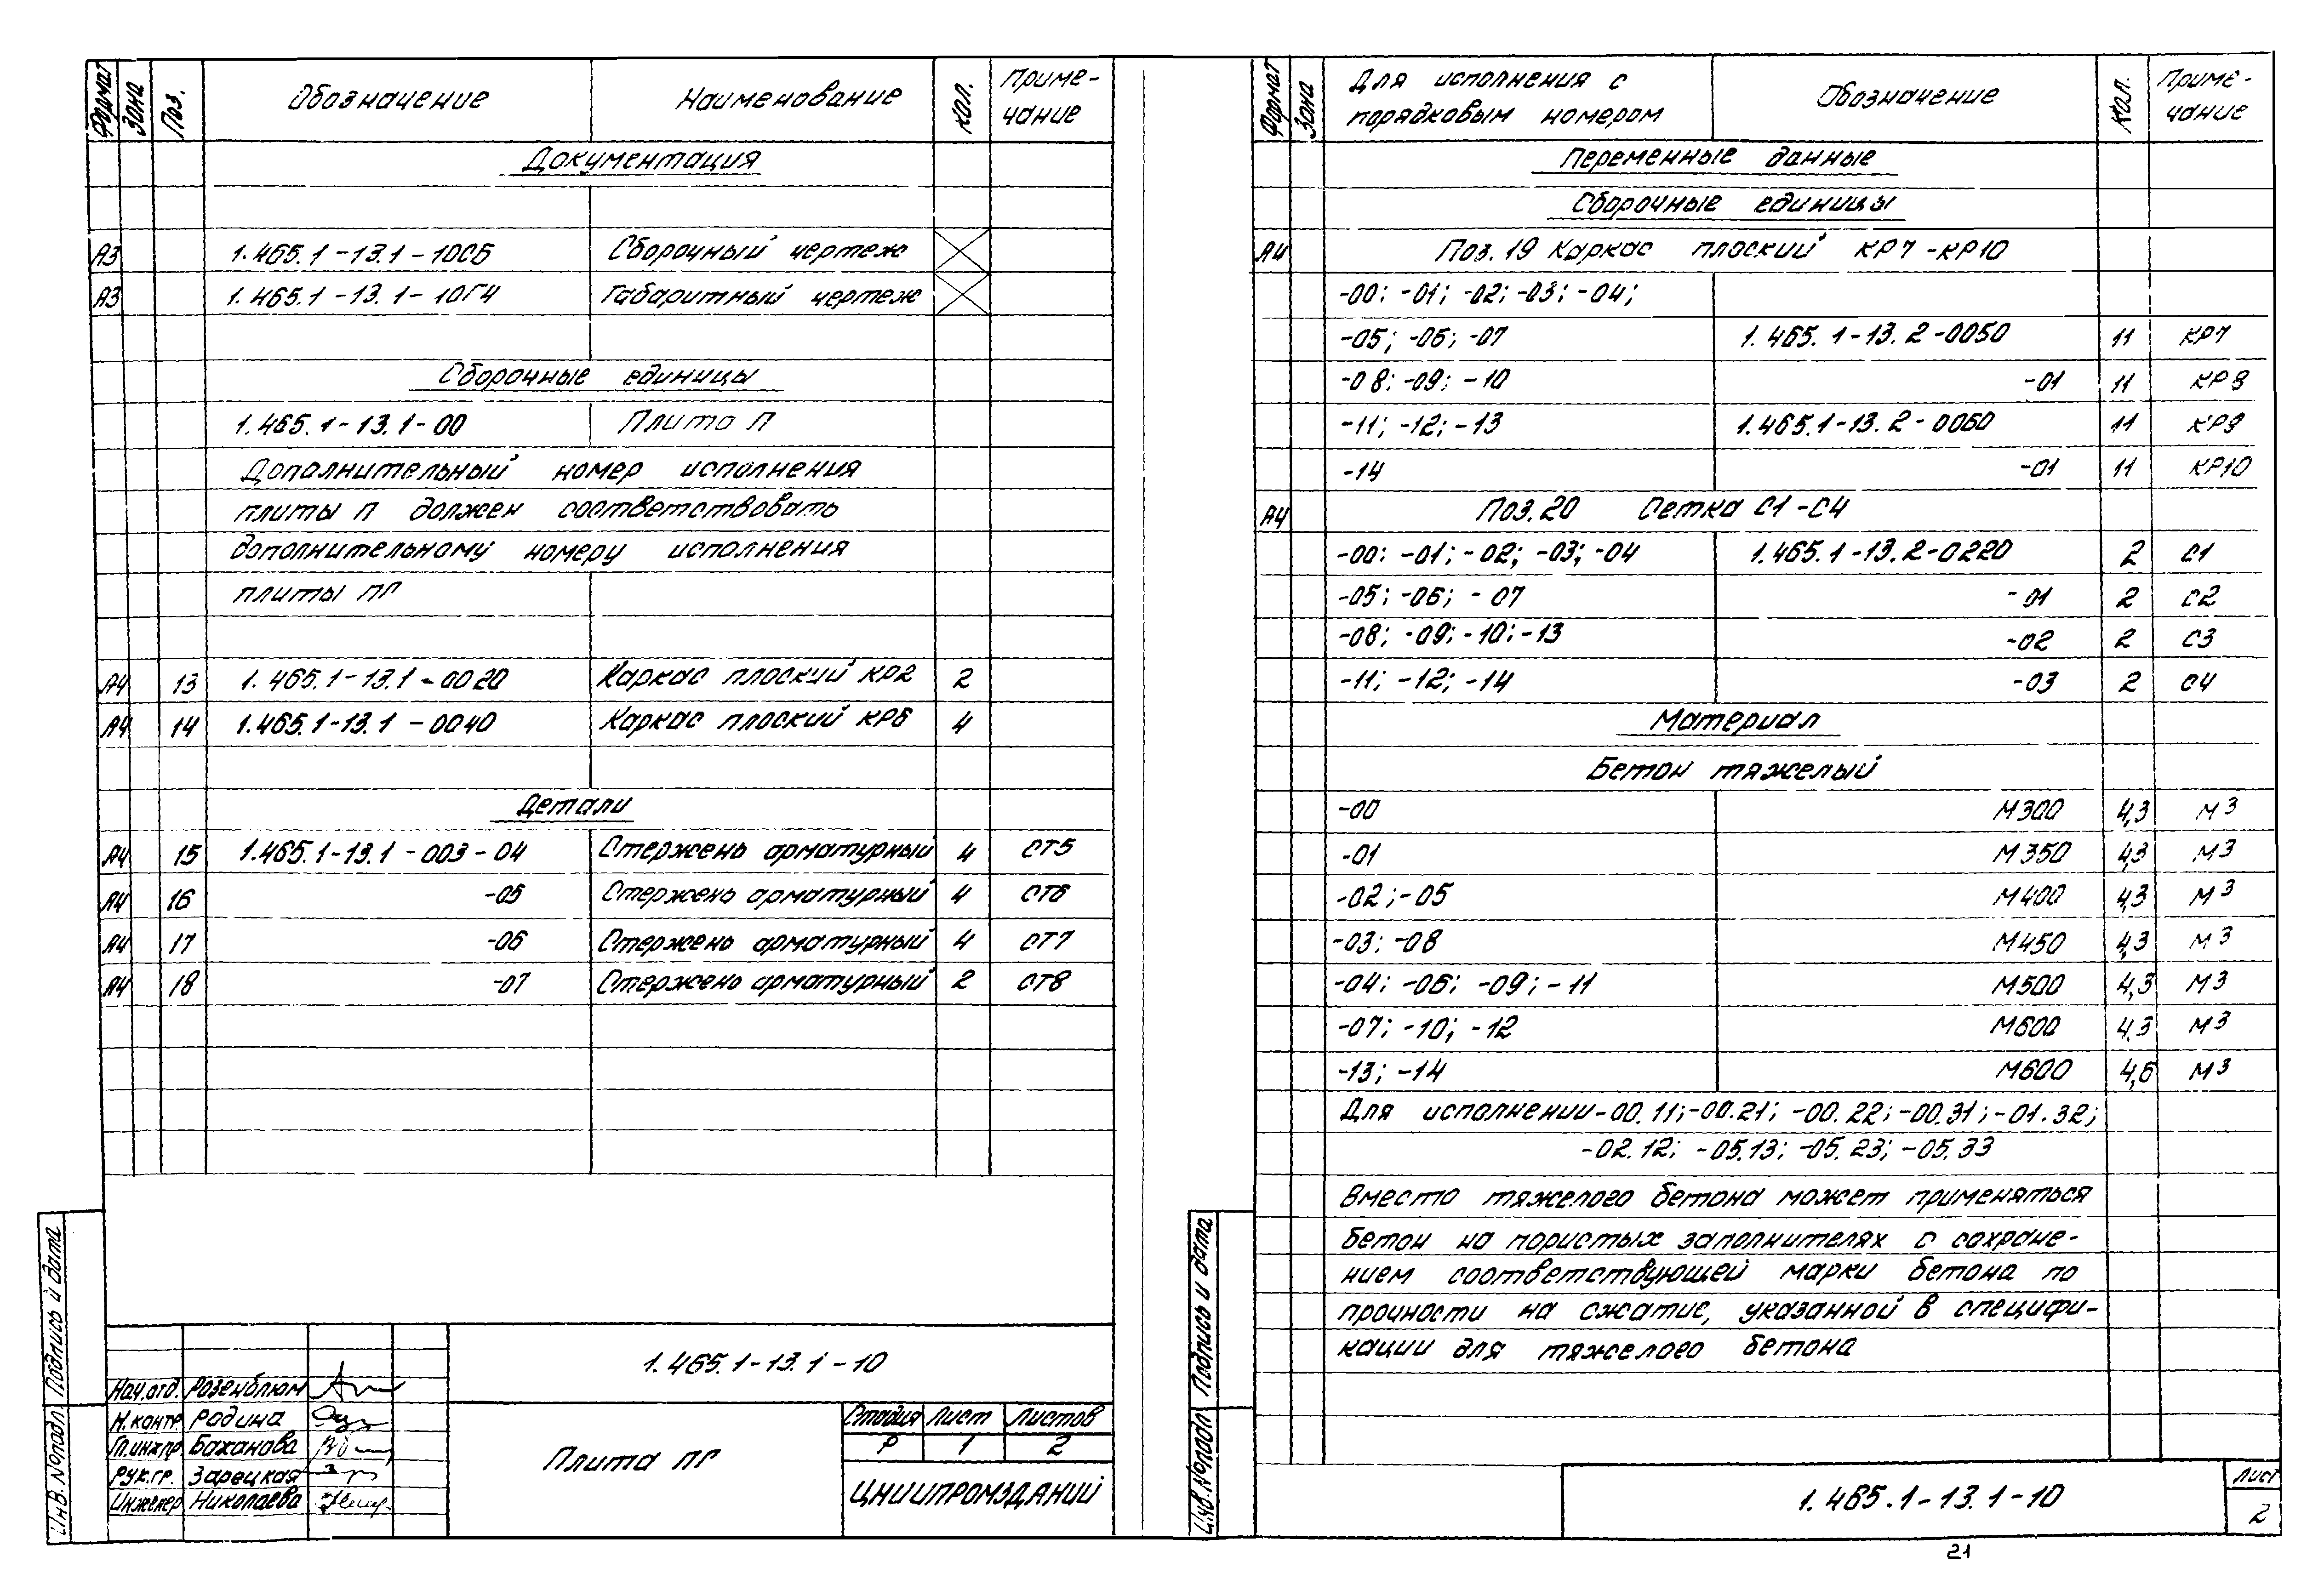 Формат Зона Поз. Обозначение Наименование Кол. Приме-
чание
Документация
А3 1.465.1-13.1-10СБ Сборочный чертеж
А3 1.465.1-13.1-10ГЧ Габаритный чертеж
Сборочные единицы
1.465.1-13.1-00 Плита П
Дополнительный номер исполнения
плиты П должен соответствовать
дополнительному номеру исполнения
плиты ПГ
А4 13 1.465.1-13.1-0020 Каркас плоский КР2 2
А4 14 1.465.1-13.1-0040 Каркас плоский КР6 4
Детали
А4 15 1.465.1-13.1-003-04 Стержень арматурный 4 СТ5
А4 16 -05 Стержень арматурный 4 СТ6
А4 17 -06 Стержень арматурный 4 СТ7
А4 18 -07 Стержень арматурный 2 СТ8
Инв.№подл. Подпись и дата
1.465.1-13.1-10
Нач.отд. Розенблюм
Н.контр Родина
Гл.инж.пр Баханова
Рук.гр. Зарецкая
Инженер Николаева
Плита ПГ
Стадия Лист Листов
Р 1 2
ЦНИИПРОМЗДАНИЙ
Формат Зона Для исполнения с
порядковым номером Обозначение Кол. Приме-
чание
Переменные данные
Сборочные единицы
А4 Поз.19 Каркас плоский КР7-КР10
-00; -01; -02; -03; -04;
-05; -06; -07 1.465.1-13.2-0050 11 КР7
-08; -09; -10 -01 11 КР8
-11; -12; -13 1.465.1-13.2-0060 11 КР9
-14 -01 11 КР10
А4 Поз.20 Сетка С1-С4
-00; -01; -02; -03; -04 1.465.1-13.2-0220 2 С1
-05; -06; -07 -01 2 С2
-08; -09; -10; -13 -02 2 С3
-11; -12; -14 -03 2 С4
Материал
Бетон тяжелый
-00 М300 4,3 м3
-01 М350 4,3 м3
-02; -05 М400 4,3 м3
-03; -08 М450 4,3 м3
-04; -06; -09; -11 М500 4,3 м3
-07; -10; -12 М600 4,3 м3
-13; -14 М600 4,6 м3
Для исполнении -00.11; -00.21; -00.22; -00.31; -01.32;
-02.12; -05.13; -05.23; -05.33
Вместо тяжелого бетона может применяться
бетон на пористых заполнителях с сохране-
нием соответствующей марки бетона по
прочности на сжатие, указанной в специфи-
кации для тяжелого бетона
Инв.№подл Подпись и дата
1.465.1-13.1-10
Лист
2
21